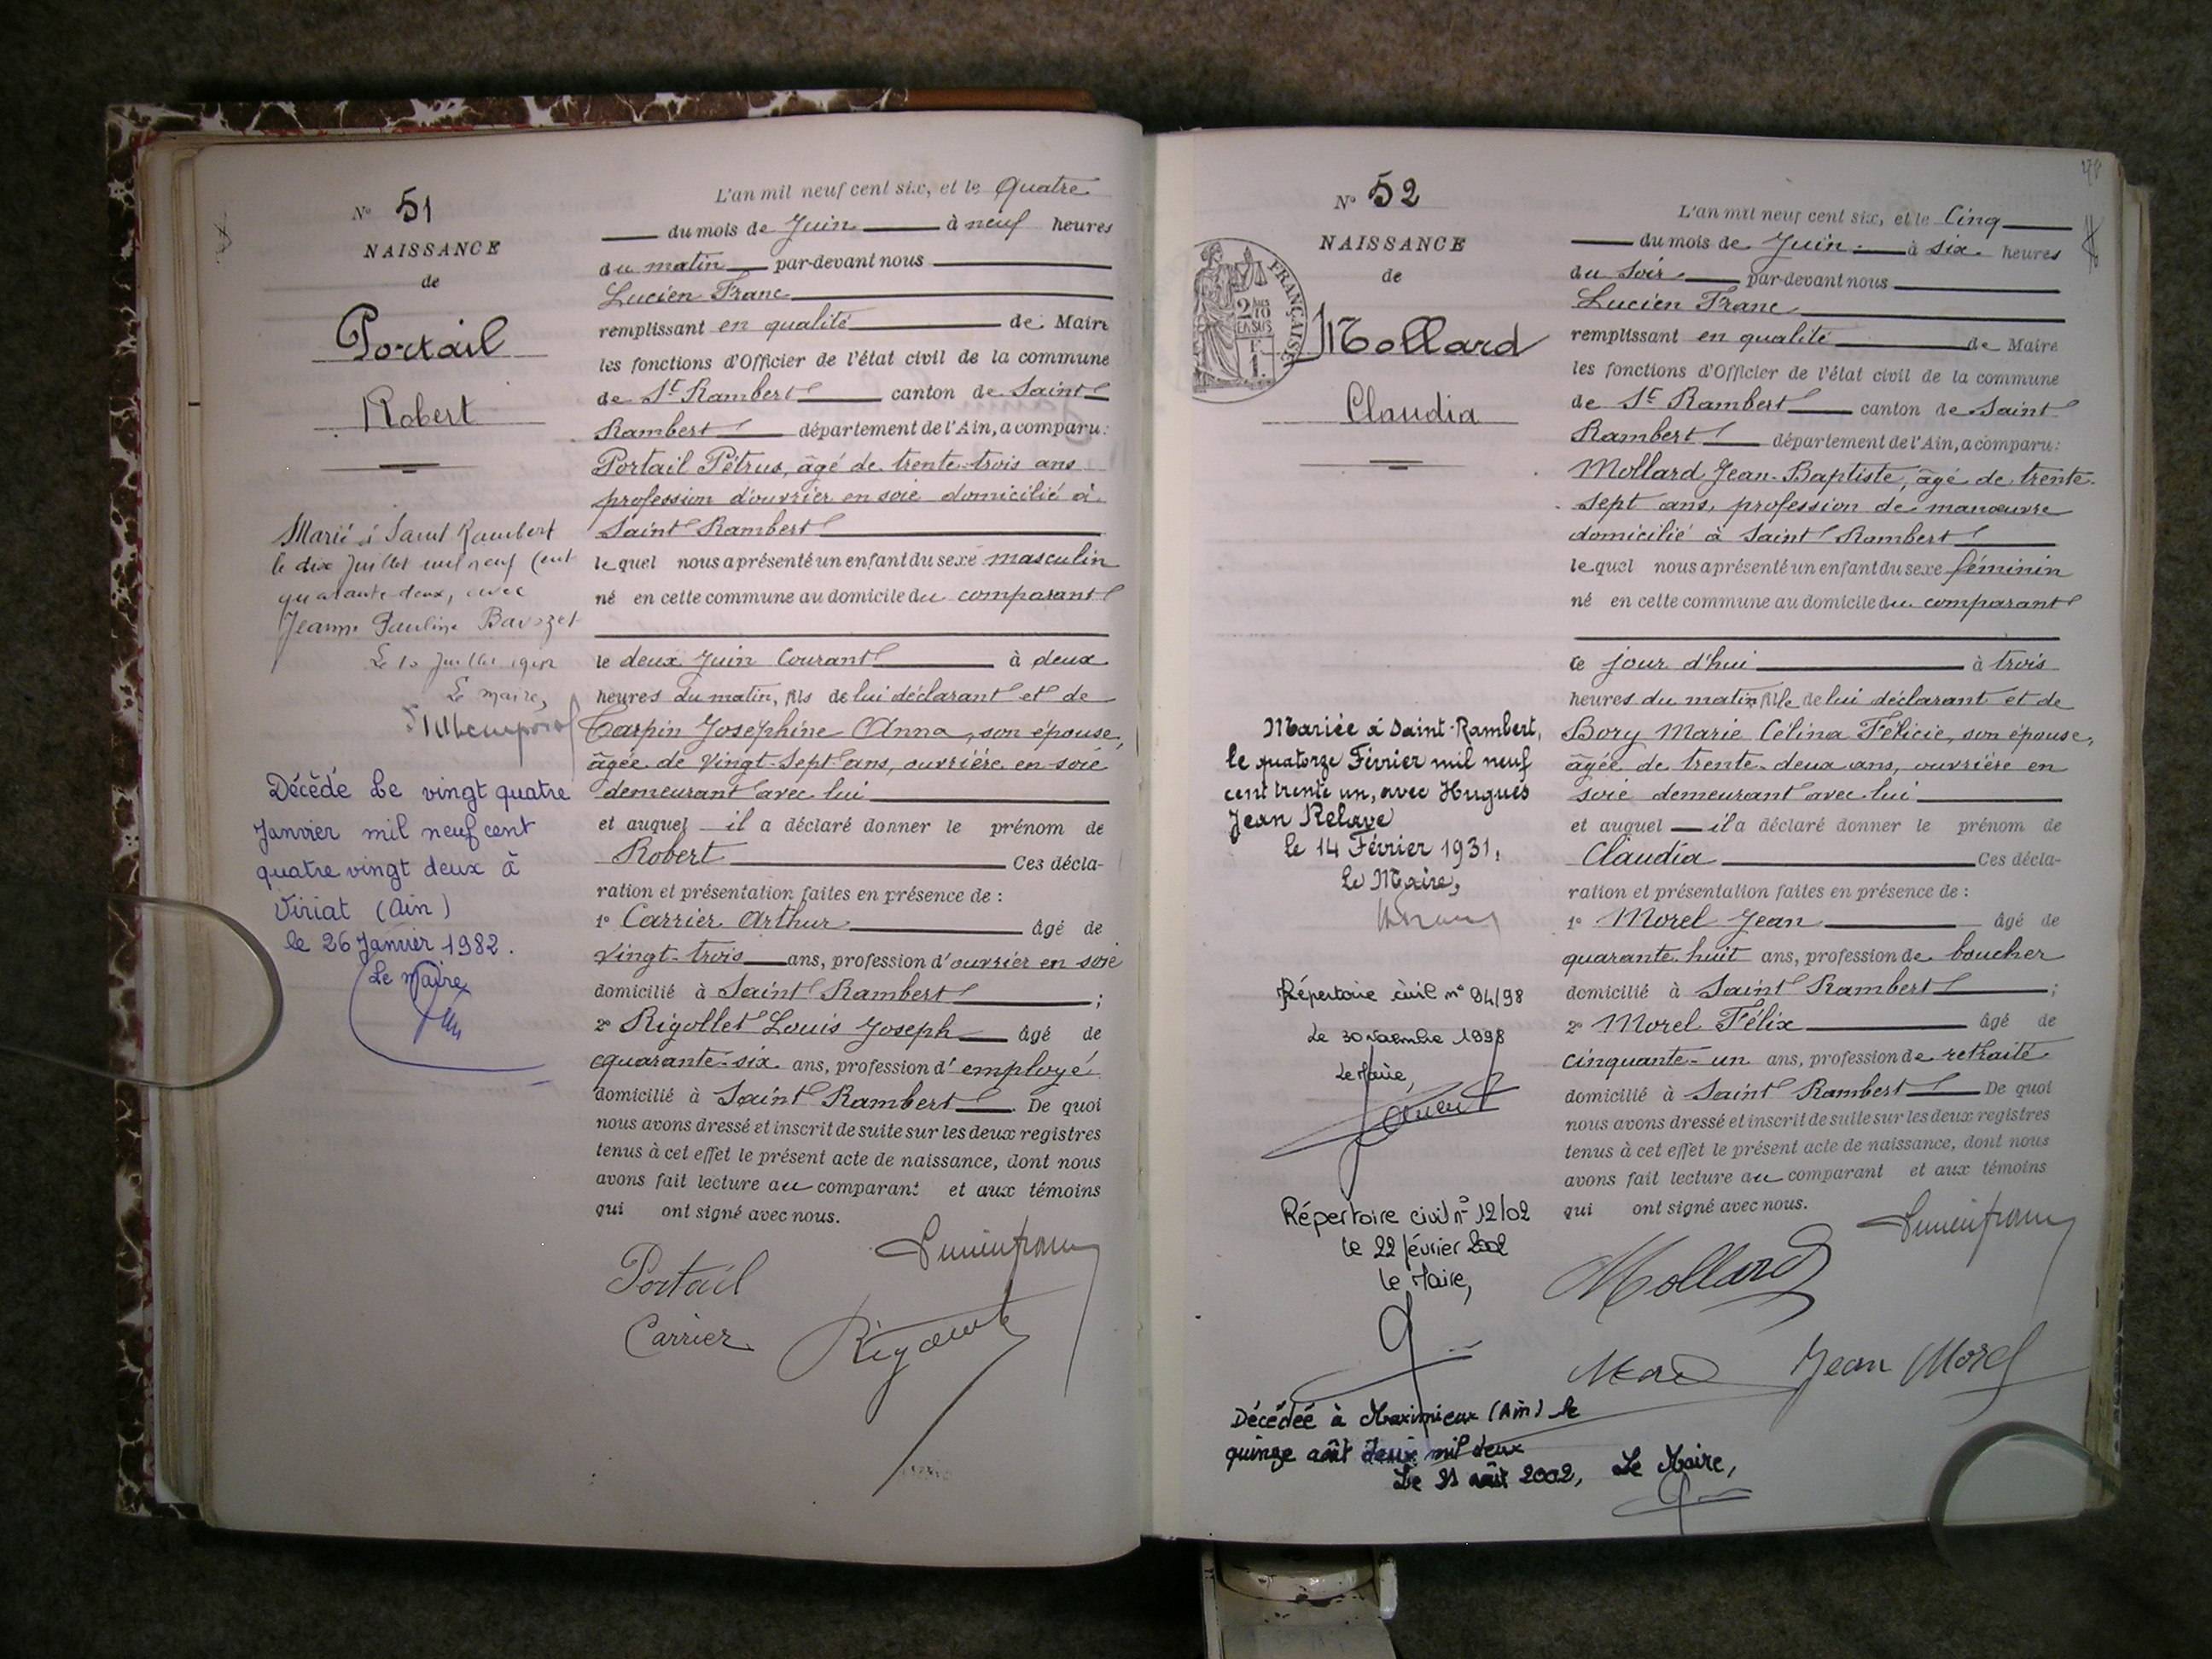 N° 51
NAISSANCE
de
Portail
Robert
Marié à Saint Rambert
le dix Juillet mil neuf cent
quarante deux, avec
Jeanne Pauline Bavozet
Le 10 Juillet 1942
Le Maire,
Décédé le vingt quatre
Janvier mil neuf cent
quatre vingt deux à
Viriat (Ain)
le 26 Janvier 1982.
Le Maire
L'an mil neuf cent six, et le Quatre
du mois de Juin à neuf heures
du matin par-devant nous
Lucien Franc
remplissant en qualité de Maire
les fonctions d'Officier de l'état civil de la commune
de St Rambert canton de Saint
Rambert département de l'Ain, a comparu:
Portail Pétrus, âgé de trente-trois ans
profession d'ouvrier en soie domicilié à
Saint Rambert
lequel nous a présenté un enfant du sexe masculin
né en cette commune au domicile du comparant
le deux Juin Courant à deux
heures du matin, fils de lui déclarant et de
Carpin Joséphine Anna, son épouse,
âgée de Vingt-Sept ans, ouvrière en soie
demeurant avec lui
et auquel il a déclaré donner le prénom de
Robert Ces décla-
ration et présentation faites en présence de :
1° Carrier Arthur âgé de
Vingt-trois ans, profession d'ouvrier en soie
domicilié à Saint Rambert ;
2° Rigollet Louis Joseph âgé de
quarante-six ans, profession d'employé
domicilié à Saint Rambert. De quoi
nous avons dressé et inscrit de suite sur les deux registres
tenus à cet effet le présent acte de naissance, dont nous
avons fait lecture au comparant et aux témoins
qui ont signé avec nous.
Lucien Franc
Portail
Carrier
N° 52
NAISSANCE
de
FRANÇAISE
Mollard
Claudia
Mariée à Saint-Rambert,
le quatorze Février mil neuf
cent trente un, avec Hugues
Jean Relave
le 14 Février 1931.
Le Maire,
Répertoire civil n° 94/98
Le 30 novembre 1998
Le Maire,
Répertoire civil n° 12/02
le 22 février 2002
le Maire,
Décédée à Meximieux (Ain) le
quinze août deux mil deux
Le 21 août 2002, Le Maire,
L'an mil neuf cent six, et le Cinq
du mois de Juin à six heures
du soir par-devant nous
Lucien Franc
remplissant en qualité de Maire
les fonctions d'Officier de l'état civil de la commune
de St Rambert canton de Saint
Rambert département de l'Ain, a comparu:
Mollard Jean-Baptiste, âgé de trente-
sept ans, profession de manœuvre
domicilié à Saint Rambert
lequel nous a présenté un enfant du sexe féminin
né en cette commune au domicile du comparant
ce jour d'hui à trois
heures du matin fille de lui déclarant et de
Bory Marie Célina Félicie, son épouse,
âgée de trente-deux ans, ouvrière en
soie demeurant avec lui
et auquel il a déclaré donner le prénom de
Claudia Ces décla-
ration et présentation faites en présence de :
1° Morel Jean âgé de
quarante huit ans, profession de boucher
domicilié à Saint Rambert ;
2° Morel Félix âgé de
cinquante-un ans, profession de retraité
domicilié à Saint Rambert De quoi
nous avons dressé et inscrit de suite sur les deux registres
tenus à cet effet le présent acte de naissance, dont nous
avons fait lecture au comparant et aux témoins
qui ont signé avec nous.
Lucien Franc
Mollard
Jean Morel